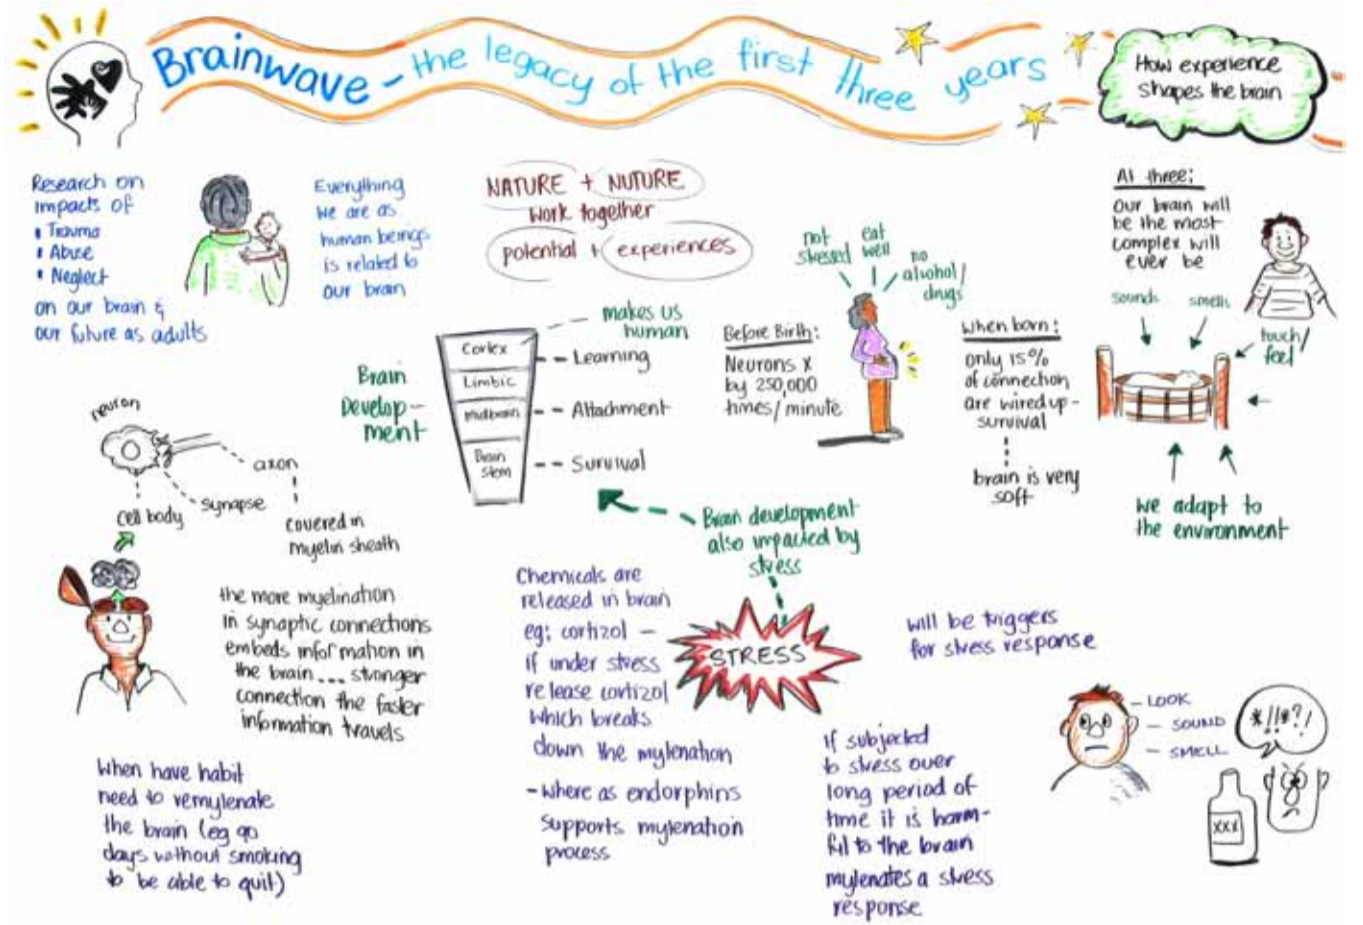 Brainwave - the legacy of the first three years
How experience
shapes the brain
Research on
impacts of
Trauma
Abuse
Neglect
on our brain &
our future as adults
Everything
we are as
human beings
is related to
our brain
NATURE + NUTURE
work together
potential + experiences
Brain
Develop-
ment
Cortex
Limbic
midbrain
Brain
stem
makes us
human
-- Learning
-- Attachment
-- Survival
Before Birth:
Neurons x
by 250,000
times/minute
not
stressed
eat
well
no
alcohol/
drugs
When born:
only 15%
of connection
are wired up -
survival
brain is very
soft
At three:
our brain will
be the most
complex will
ever be
sounds
smells
touch/
feel
we adapt to
the environment
neuron
axon
synapse
cell body
covered in
myelin sheath
the more myelination
in synaptic connections
embeds information in
the brain ... stronger
connection the faster
information travels
When have habit
need to remylenate
the brain (eg go
days without smoking
to be able to quit)
Brain development
also impacted by
stress
STRESS
Chemicals are
released in brain
eg: cortizol -
if under stress
release cortizol
which breaks
down the mylenation
- where as endorphins
supports mylenation
process
If subjected
to stress over
long period of
time it is harm-
ful to the brain
mylenates a stress
response
will be triggers
for stress response
- LOOK
- SOUND
- SMELL
*!!*?!
XXX